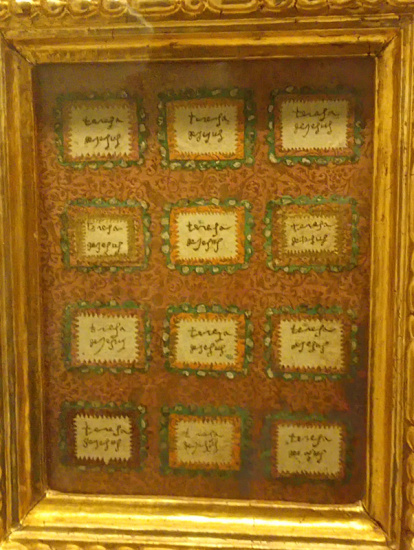 teresa
dejesus
teresa
dejesus
teresa
dejesus
teresa
dejesus
teresa
dejesus
teresa
dejesus
teresa
dejesus
teresa
dejesus
teresa
dejesus
teresa
dejesus
teresa
dejesus
teresa
dejesus